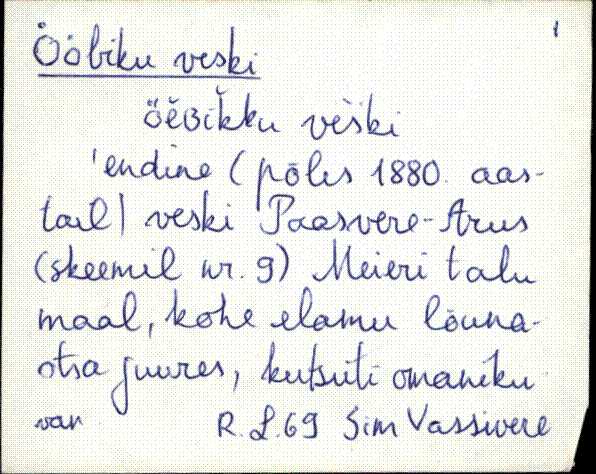 1
Ööbiku veski
öěʙik̆ku vèški
'endine (põles 1880. aas-
tail) veski Paasvere-Arus
(skeemil nr. 9) Meieri talu
maal, kohe elamu lõuna-
otsa juures, kutsuti omaniku
van R.L.69 Sim Vassivere